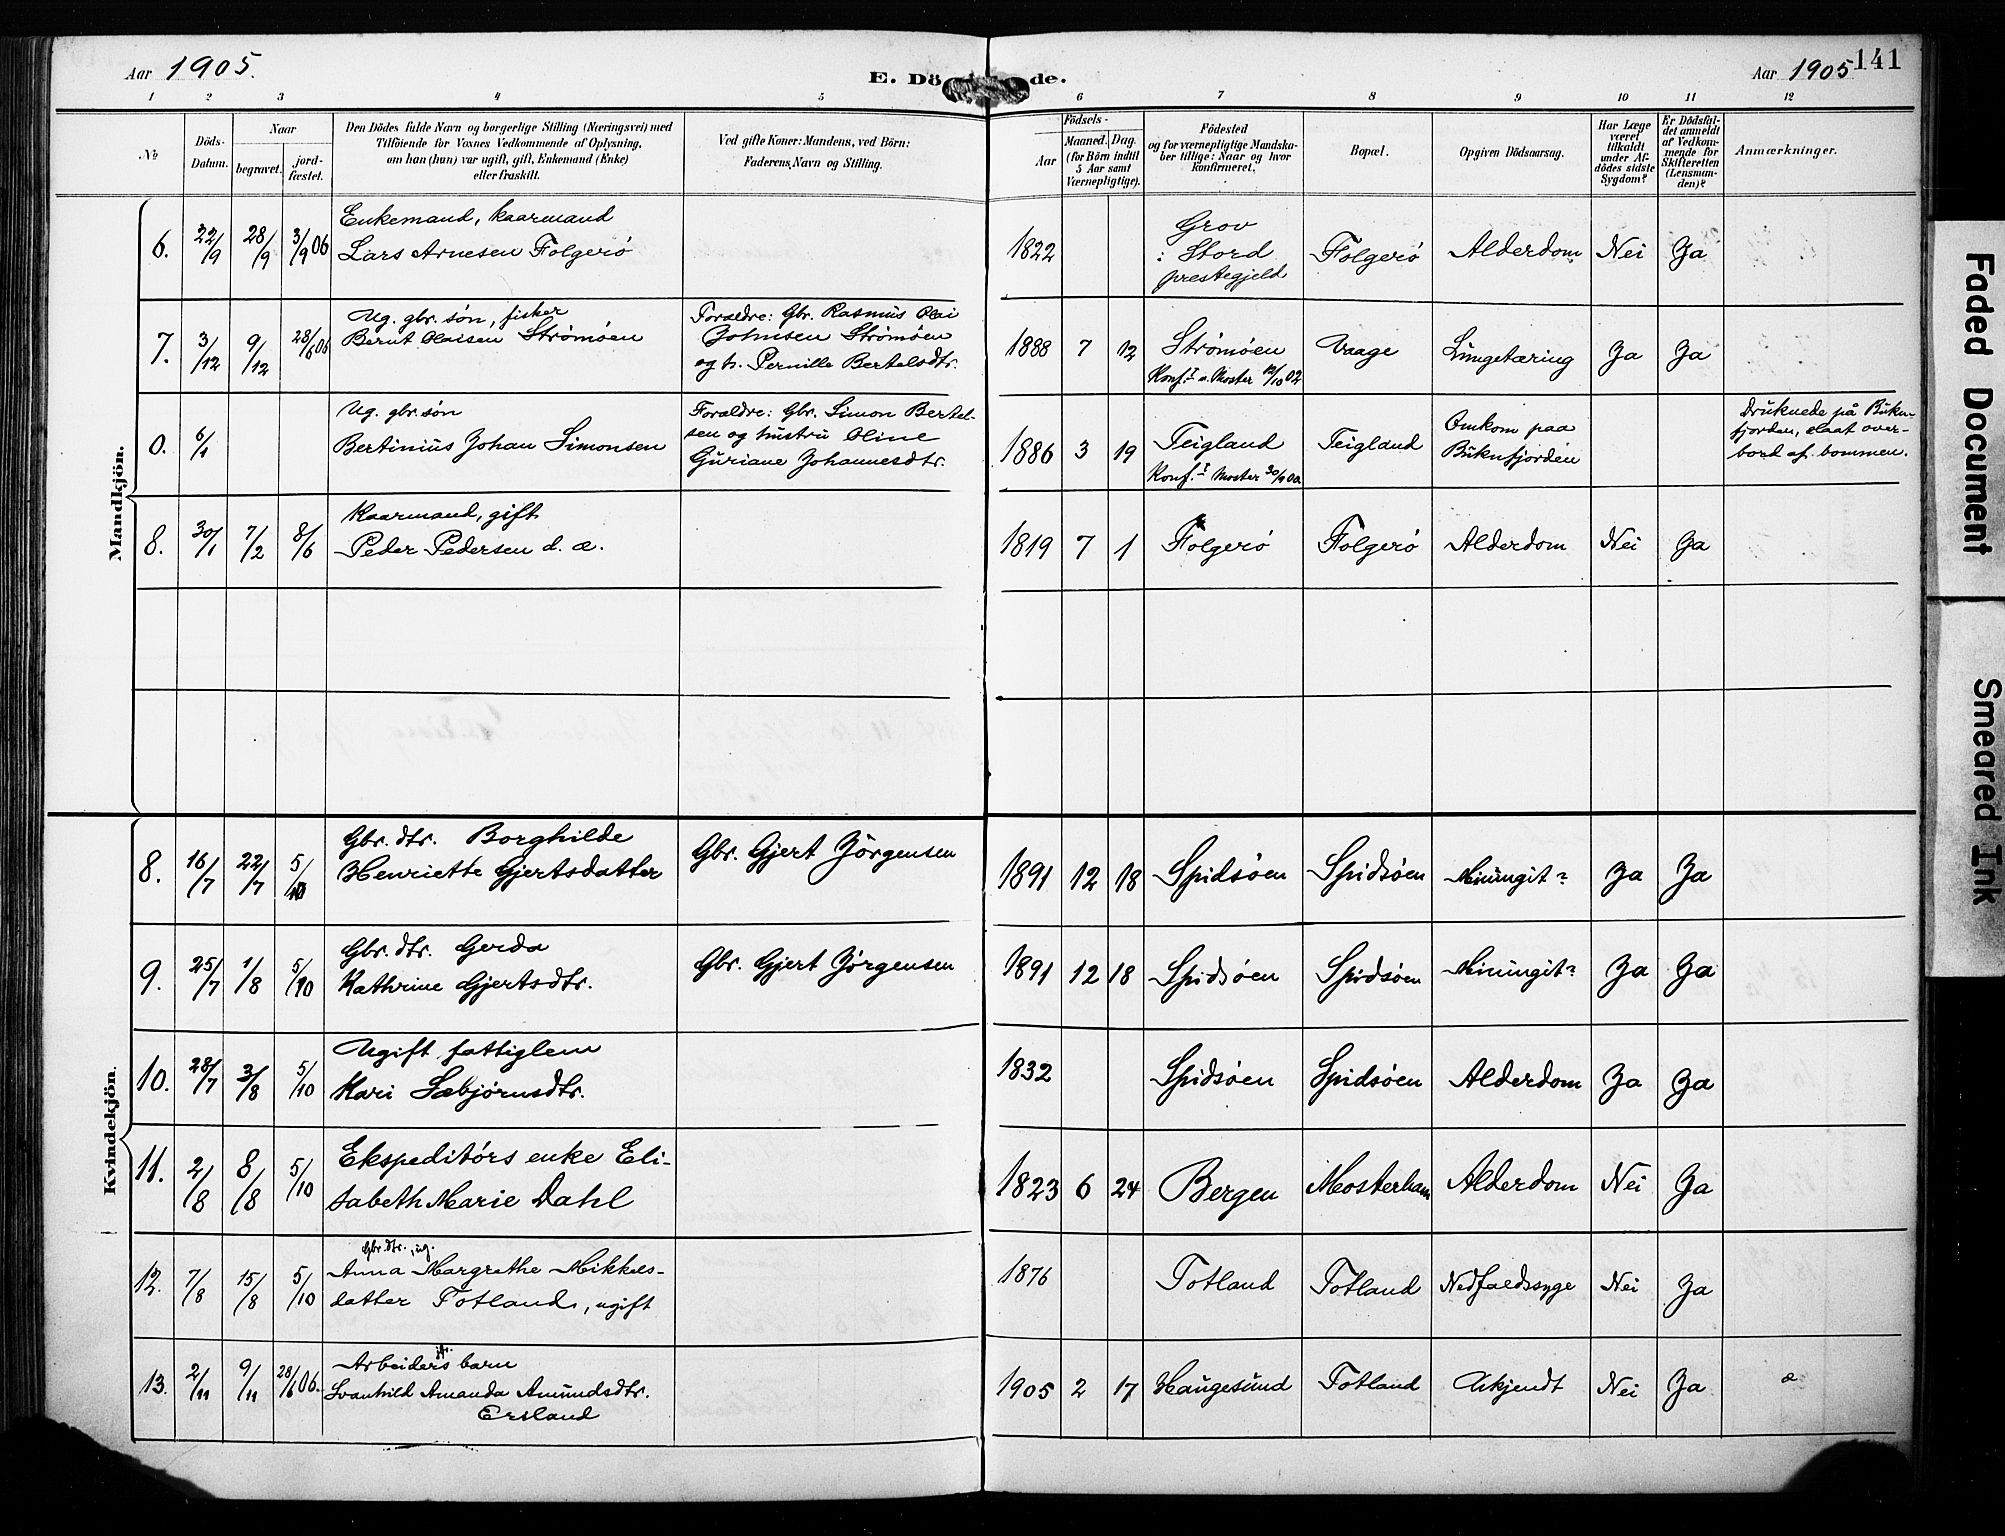 Aar 1905.
E. Dö de.
Aar 1905
141
1 2 3 4 5 6 7 8 9 10 11 12
No
Döds-
Datum.
Naar
begravet.
jord-
fæstet.
Den Dödes fulde Navn og borgerlige Stilling (Næringsvei) med
Tilföiende for Voxnes Vedkommende af Oplysning,
om han (hun) var ugift, gift, Enkemand (Enke)
eller fraskilt.
Ved gifte Koner: Mandens, ved Börn:
Faderens, Navn og Stilling.
Födsels-
Aar
Maaned. Dag.
(for Börn indtil
5 Aar samt
Værnepligtige).
Födested
og for værnepligtige Mandska-
ber tillige: Naar og hvor
konfirmeret.
Bopæl.
Opgiven Dödsaarsag.
Har Læge
været
tilkaldt
under Af-
dödes sidste
Sygdom?
Er Dödsfal-
det anmeldt
af Vedkom-
mende for
Skifteretten
(Lensman-
den)?
Anmærkninger.
Mandkjön.
6. 22/9 28/9 3/9 06
Enkemand, kaarmand
Lars Arnesen Folgerö
1822
Grov
: Stord
prestegjeld
Folgerö Alderdom Nei Ja
7. 3/12 9/12 28/6 06
Ug. gbr. søn, fisker
Bernt Olaisen Strømøen
Forældre: Gbr. Rasmus Olai
Johnsen Strømøen
og h. Pernille Bertelsdtr.
1888 7 12
Strømøen
Konf. i Moster 12/10 02
Vaage Lungetæring Ja Ja
0. 6/1
Ug. gbr. søn
Bertinius Johan Simonsen
Forældre: Gbr. Simon Bertel-
sen og hustru Oline
Guriane Johannesdtr.
1886 3 19
Teigland
Konf. i Moster 30/9 00.
Teigland
Omkom paa
Buknfjorden
Druknede på Bukn-
fjorden, slaat over-
bord af bommen.
8. 30/1 7/2 8/6
Kaarmand, gift
Peder Pedersen d. æ.
1819 7 1 Folgerö Folgerö Alderdom Nei Ja
Kvindekjön.
8. 16/7 22/7 5/10
Gbr. dtr. Borghilde
Henriette Gjertsdatter
Gbr. Gjert Jörgensen
1891 12 18 Spidsöen Spidsöen Miningit? Ja Ja
9. 25/7 1/8 5/10
Gbr. dtr. Gerda
Kathrine Gjertsdtr.
Gbr. Gjert Jörgensen
1891 12 18 Spidsöen Spidsöen Miningit? Ja Ja
10. 28/7 3/8 5/10
Ugift fattiglem
Kari Sæbjörnsdtr.
1832 Spidsöen Spidsöen Alderdom Ja Ja
11. 2/8 8/8 5/10
Ekspeditörs enke Eli-
sabeth Marie Dahl
1823 6 24 Bergen Mosterhavn Alderdom Nei Ja
12. 7/8 15/8 5/10
Gbr. dtr., ug.
Anna Margrethe Mikkels-
datter Totland, ugift
1876 Totland Totland Nedfaldssyge Nei Ja
13. 2/11 9/11 28/6 06.
Arbeiders barn
Svanhild Amanda Amundsdtr.
Ersland
1905 2 17 Haugesund Totland Ukjendt Nei Ja
Faded Document
Smeared Ink